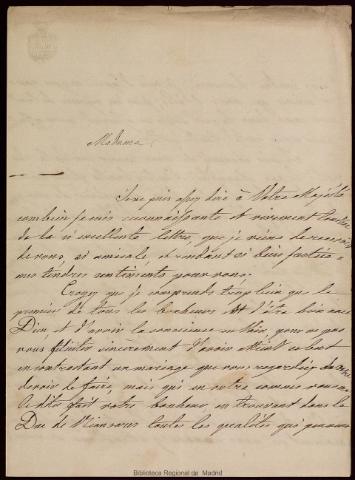 Madame
Je ne puis assez dire à Votre Majesté
combien je suis reconnaissante et vivement touchée
de la si excellente lettre, que je viens de recevoir
de vous, si amicale, et rendant si bien justice à
mes tendres sentiments pour vous.
Croyez que je comprends trop bien que le
premier de tous les bonheurs est d'être bien avec
Dieu et d'avoir la conscience en paix pour ne pas
vous féliciter sincèrement d'avoir
en contractant un mariage que vous regardiez
devoir de faire, mais qui en outre comme vous me
le dites fait votre bonheur en trouvant dans le
Duc de Riansares toutes les qualités qui peuvent
Biblioteca Regional de Madrid